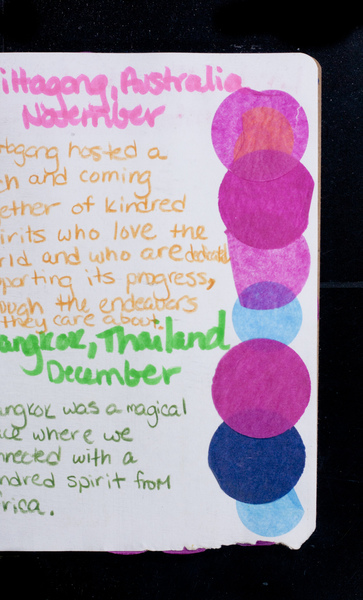 ittagong, Australia
November
tagong hosted a
h and coming
gether of kindred
irits who love the
rld and who are dedicated
porting its progress,
ough the endeabors
they care about.
angkok, Thailand
December
angkok was a magical
ace where we
nnected with a
ndred spirit from
frica.